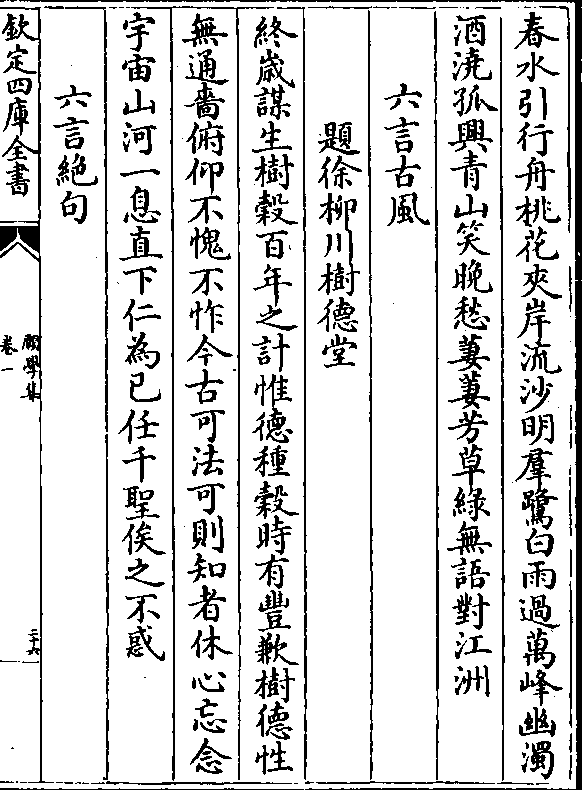 春水引行舟桃花夾岸流沙明羣鷺白雨過萬峰幽濁
酒澆孤興青山笑晚愁萋萋芳草綠無語對江洲
六言古風
題徐柳川樹德堂
終歲謀生樹榖百年之計惟德種榖時有豐歉樹德性
無通嗇俯仰不愧不怍今古可法可則知者休心忘念
宇宙山河一息直下仁為已任千聖俟之不惑
六言絶句
欽定四庫全書
願學集
卷一
三十六